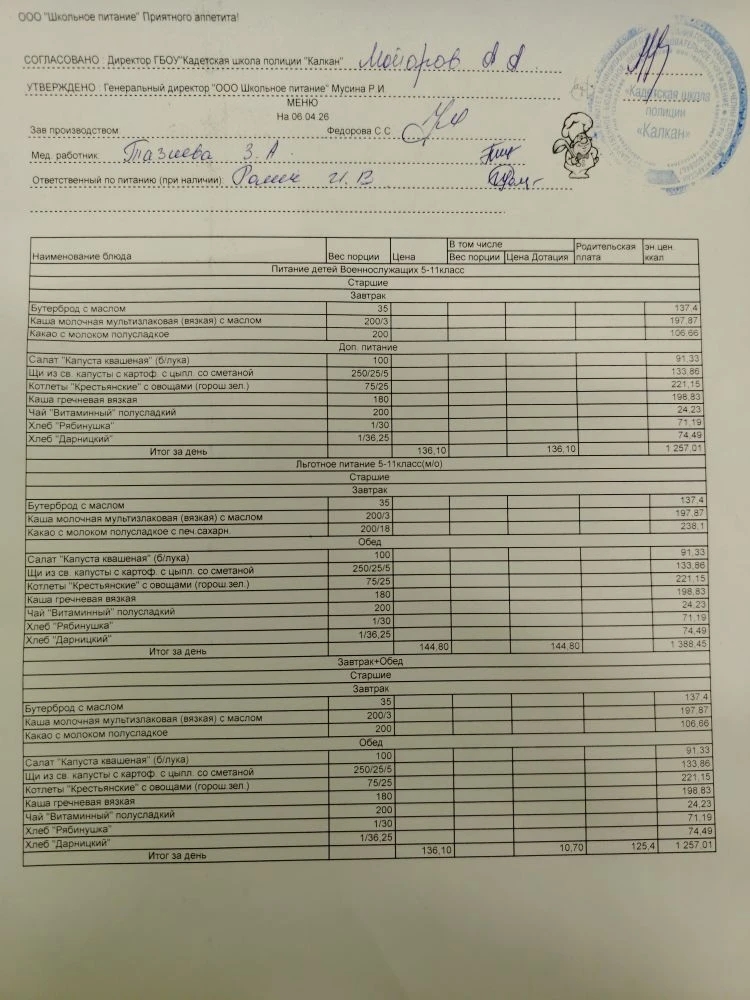 ООО "Школьное питание" Приятного аппетита!
СОГЛАСОВАНО : Директор ГБОУ"Кадетская школа полиции "Калкан"
УТВЕРЖДЕНО : Генеральный директор "ООО Школьное питание" Мусина Р.И.
МЕНЮ
На 06.04.26
Зав производством Федорова С.С.
Мед. работник: Тазиева З. А.
Ответственный по питанию (при наличии):
«Кадетская школа
полиции
«Калкан»
Наименование блюда Вес порции Цена В том числе Вес порции Цена Дотация Родительская плата эн.цен. ккал
Питание детей Военнослужащих 5-11класс
Старшие
Завтрак
Бутерброд с маслом 35 137,4
Каша молочная мультизлаковая (вязкая) с маслом 200/3 197,87
Какао с молоком полусладкое 200 106,66
Доп. питание
Салат "Капуста квашеная" (б/лука) 100 91,33
Щи из св. капусты с картоф. с цыпл. со сметаной 250/25/5 133,86
Котлеты "Крестьянские" с овощами (горош.зел.) 75/25 221,15
Каша гречневая вязкая 180 198,83
Чай "Витаминный" полусладкий 200 24,23
Хлеб "Рябинушка" 1/30 71,19
Хлеб "Дарницкий" 1/36,25 74,49
Итог за день 136,10 136,10 1 257,01
Льготное питание 5-11класс(м/о)
Старшие
Завтрак
Бутерброд с маслом 35 137,4
Каша молочная мультизлаковая (вязкая) с маслом 200/3 197,87
Какао с молоком полусладкое с печ.сахарн. 200/18 238,1
Обед
Салат "Капуста квашеная" (б/лука) 100 91,33
Щи из св. капусты с картоф. с цыпл. со сметаной 250/25/5 133,86
Котлеты "Крестьянские" с овощами (горош.зел.) 75/25 221,15
Каша гречневая вязкая 180 198,83
Чай "Витаминный" полусладкий 200 24,23
Хлеб "Рябинушка" 1/30 71,19
Хлеб "Дарницкий" 1/36,25 74,49
Итог за день 144,80 144,80 1 388,45
Завтрак+Обед
Старшие
Завтрак
Бутерброд с маслом 35 137,4
Каша молочная мультизлаковая (вязкая) с маслом 200/3 197,87
Какао с молоком полусладкое 200 106,66
Обед
Салат "Капуста квашеная" (б/лука) 100 91,33
Щи из св. капусты с картоф. с цыпл. со сметаной 250/25/5 133,86
Котлеты "Крестьянские" с овощами (горош.зел.) 75/25 221,15
Каша гречневая вязкая 180 198,83
Чай "Витаминный" полусладкий 200 24,23
Хлеб "Рябинушка" 1/30 71,19
Хлеб "Дарницкий" 1/36,25 74,49
Итог за день 136,10 10,70 125,4 1 257,01